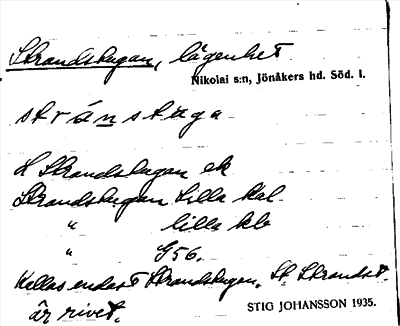 Strandstugan, lägenhet
Nikolai s:n, Jönåkers hd. Söd. l.
stránstuga
St Strandstugan ek
Strandstugan Lilla kal.
" lilla kb
" G56.
Kallas endast Strandstugan. St. Strandst.
är rivet.
STIG JOHANSSON 1935.